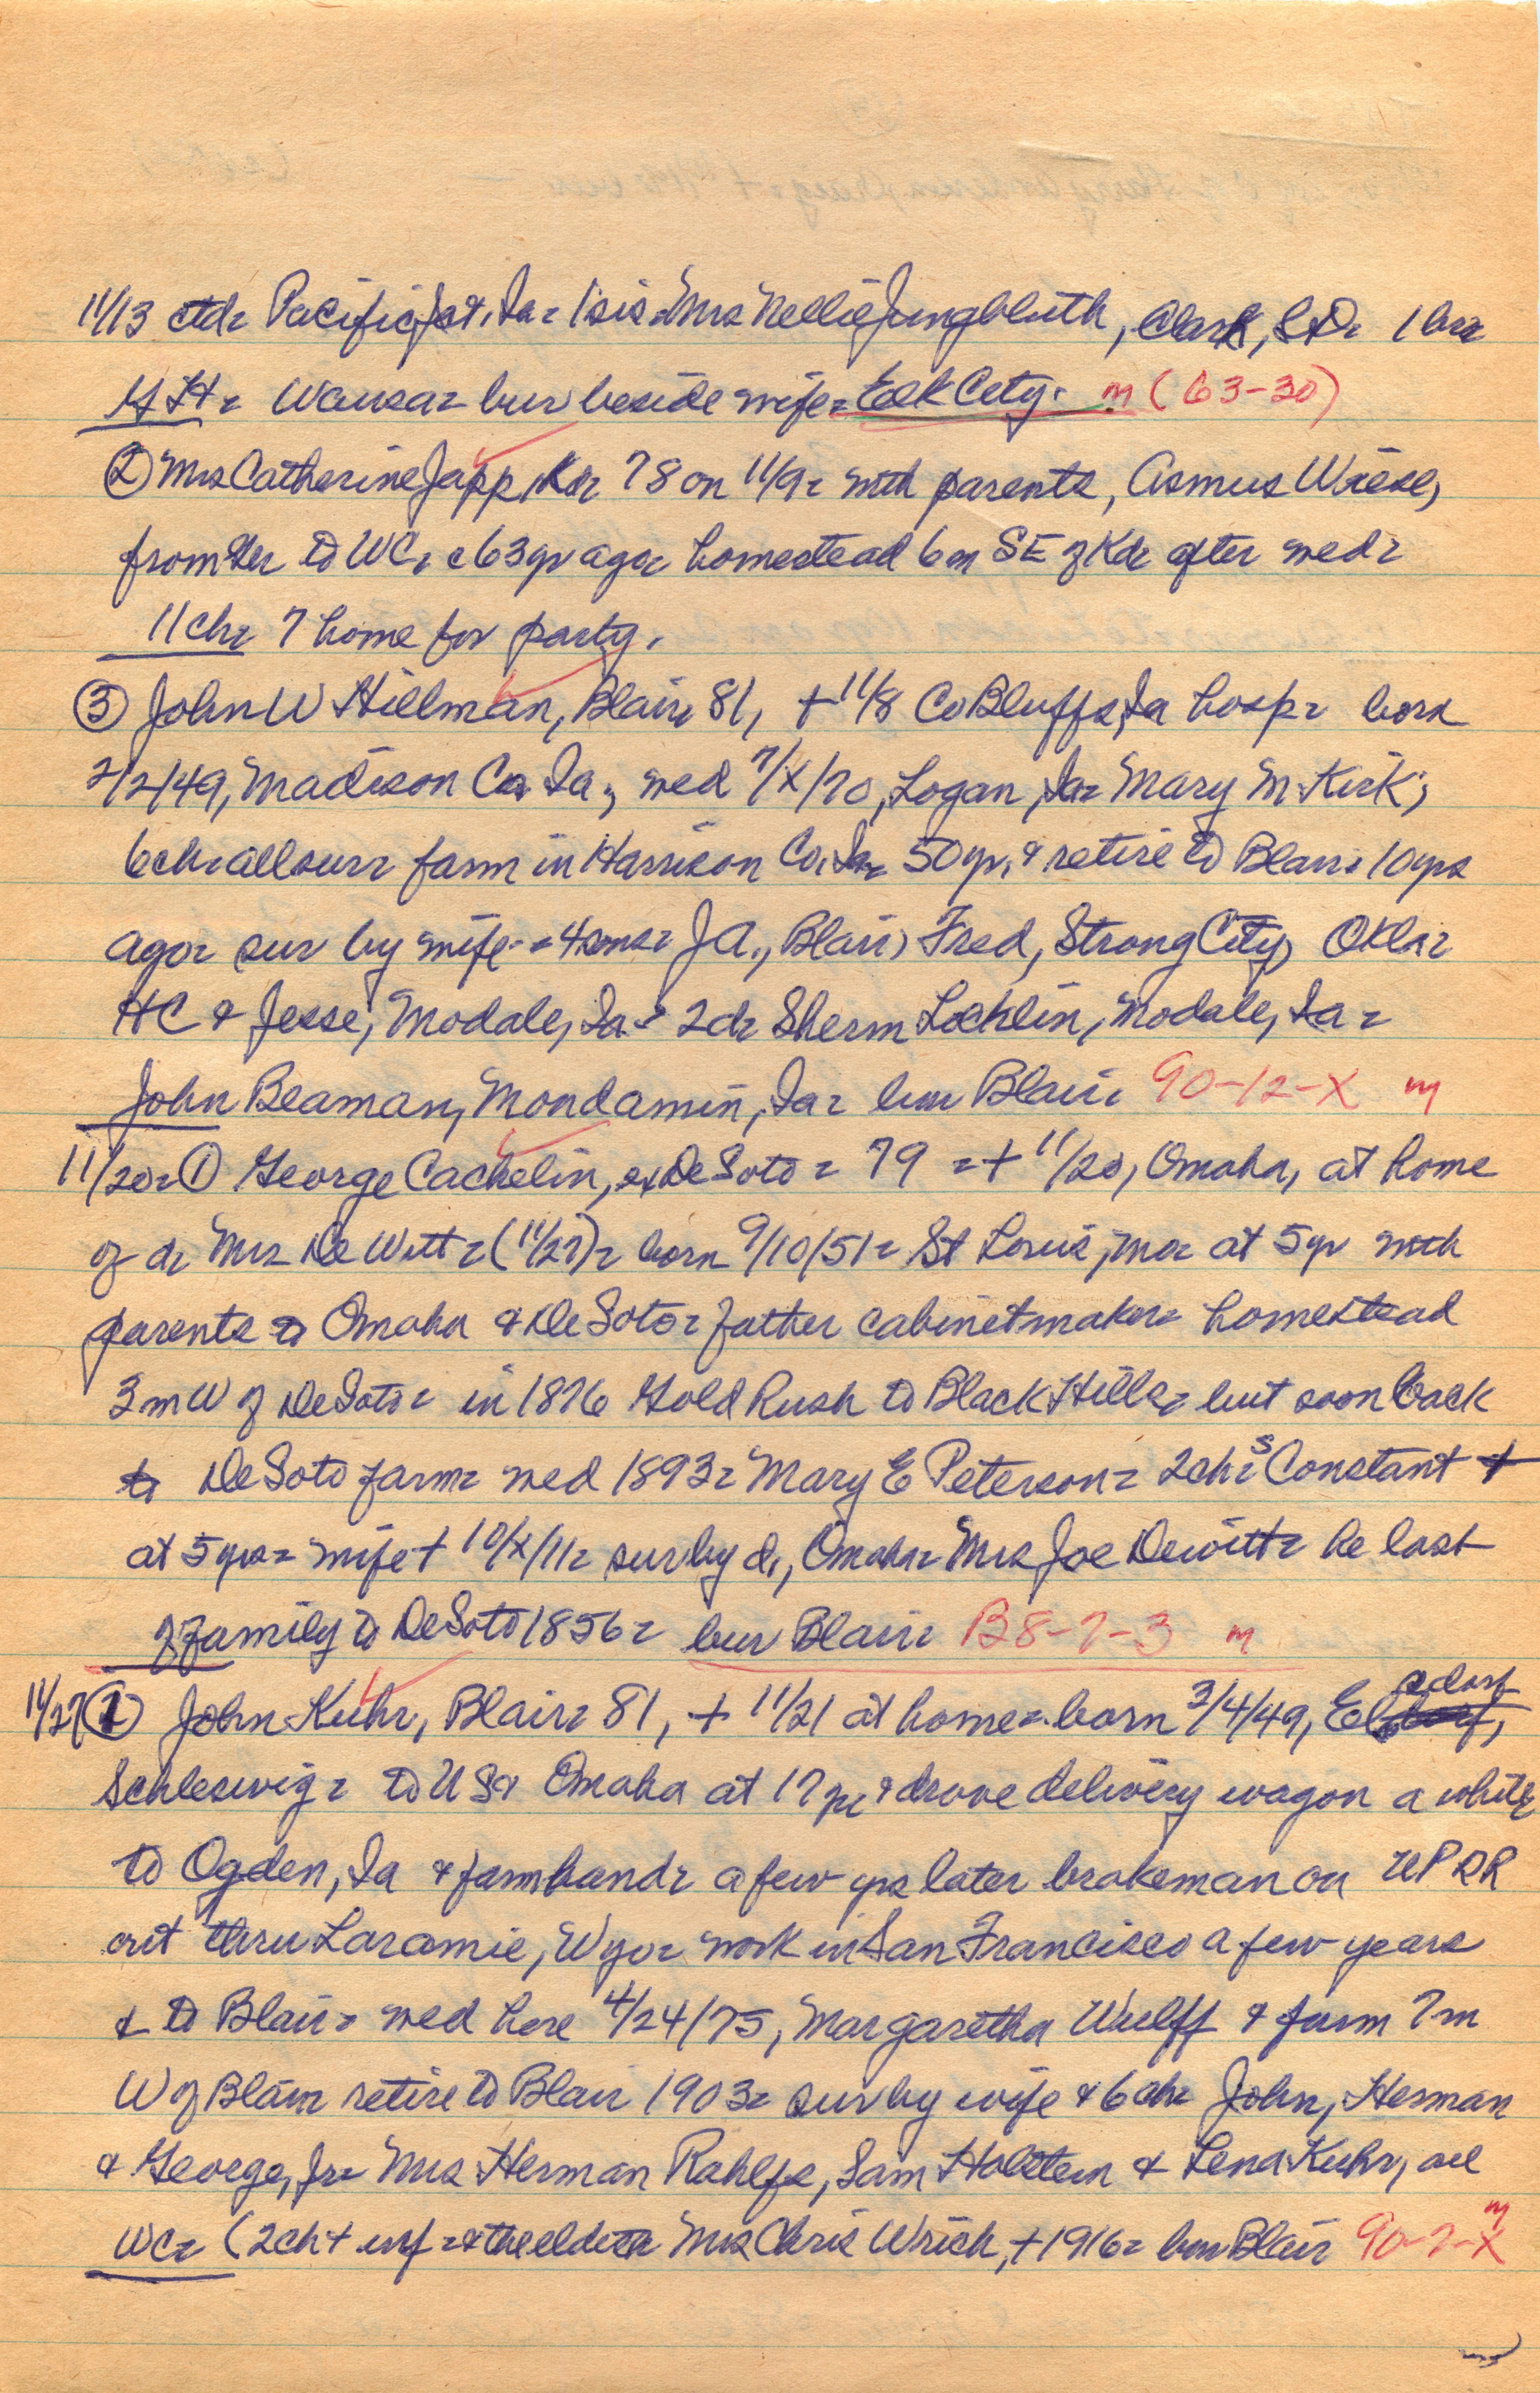 11/13 ctd= Pacific Jct, Ia= 1 sis= Mrs Nellie Jungbluth, Clark, SD= 1 bro
H= Wausa= bur beside wife= Elk City. m (63-30)
② Mrs Catherine Japp, Kd= 78 on 11/9= with parents, Asmus Wiese,
from Ger to WC, c 63 yr ago= homestead 6 m SE of Kd= after wed=
11 ch= 7 home for party.
③ John W Hillman, Blair= 81, + 11/8 Co Bluffs, Ia hosp= born
2/2/49, Madison Co Ia; wed 7/X/70, Logan, Ia= Mary M Kirk;
6 ch= all sur= farm in Harrison Co, Ia= 50 yr, & retire to Blair= 10 yrs
ago= sur by wife= 4 sons= J A., Blair, Fred, Strong City, Okla=
HC & Jesse, Modale, Ia= 2 d= Sherm Locklin, Modale, Ia=
John Beaman, Mondamin, Ia= bur Blair= 90-12-X m
11/20= ① George Cachelin, ex DeSoto= 79 =+ 11/20, Omaha, at home
of d= Mrs De Witt= (11/27)= born 9/10/51= St Louis, Mo= at 5 yr with
parents to Omaha & DeSoto= father cabinetmaker= homestead
3 m W of DeSoto= in 1876 Gold Rush to Black Hills= but soon back
to DeSoto farm= wed 1893= Mary E Peterson= 2 ch= S Constant +
at 5 yrs= wife + 10/X/11= sur by d, Omaha= Mrs Joe Dewitt= he last
of family to DeSoto 1856= bur Blair= B8-7-3 m
11/27 ① John Kuhr, Blair= 81, + 11/21 at home= born 3/4/49, Elsdorf,
Schleswig= to US & Omaha at 17 yr & drove delivery wagon a while
to Ogden, Ia & farmhand= a few yrs later brakeman on UP RR
out thru Laramie, Wyo= work in San Francisco a few years
& to Blair= wed here 4/24/75, Margaretha Wulff & farm 7 m
W of Blair= retire to Blair 1903= sur by wife & 6 ch= John, Herman
& George, Jr= Mrs Herman Rahlfs, Sam Holstein & Lena Kuhr, all
WC= (2 ch + inf= & the eldest= Mrs Chris Wrich, + 1916= bur Blair 90-2-X m